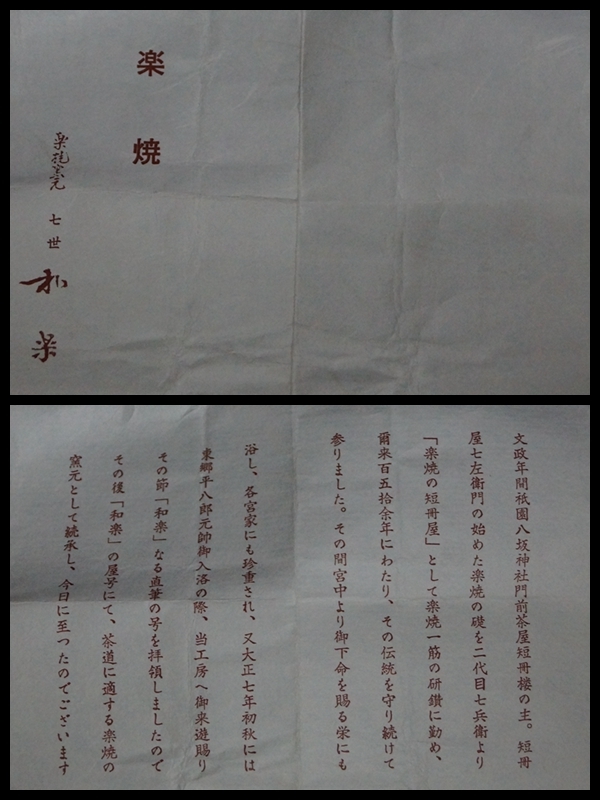 楽焼
楽焼窯元 七世 和楽
文政年間祇園八坂神社門前茶屋短冊楼の主。短冊
屋七左衛門の始めた楽焼の礎を二代目七兵衛より
「楽焼の短冊屋」として楽焼一筋の研鑽に勤め、
爾来百五拾余年にわたり、その伝統を守り続けて
参りました。その間宮中より御下命を賜る栄にも
浴し、各宮家にも珍重され、又大正七年初秋には
東郷平八郎元帥御入洛の際、当工房へ御来遊賜り
その節「和楽」なる直筆の号を拝領しましたので
その後「和楽」の屋号にて、茶道に適する楽焼の
窯元として継承し、今日に至つたのでございます